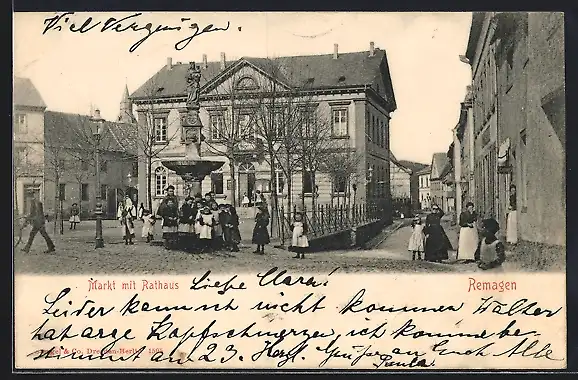 Viel Vergnügen.
Markt mit Rathaus
Liebe Clara!
Remagen
Leider kannst nicht kommen Walter
hat arge Kopfschmerzen, ich komme be-
stimmt am 23. Herzl. Grüße an Euch Alle
& Co., Dresden-Berlin
Paula.